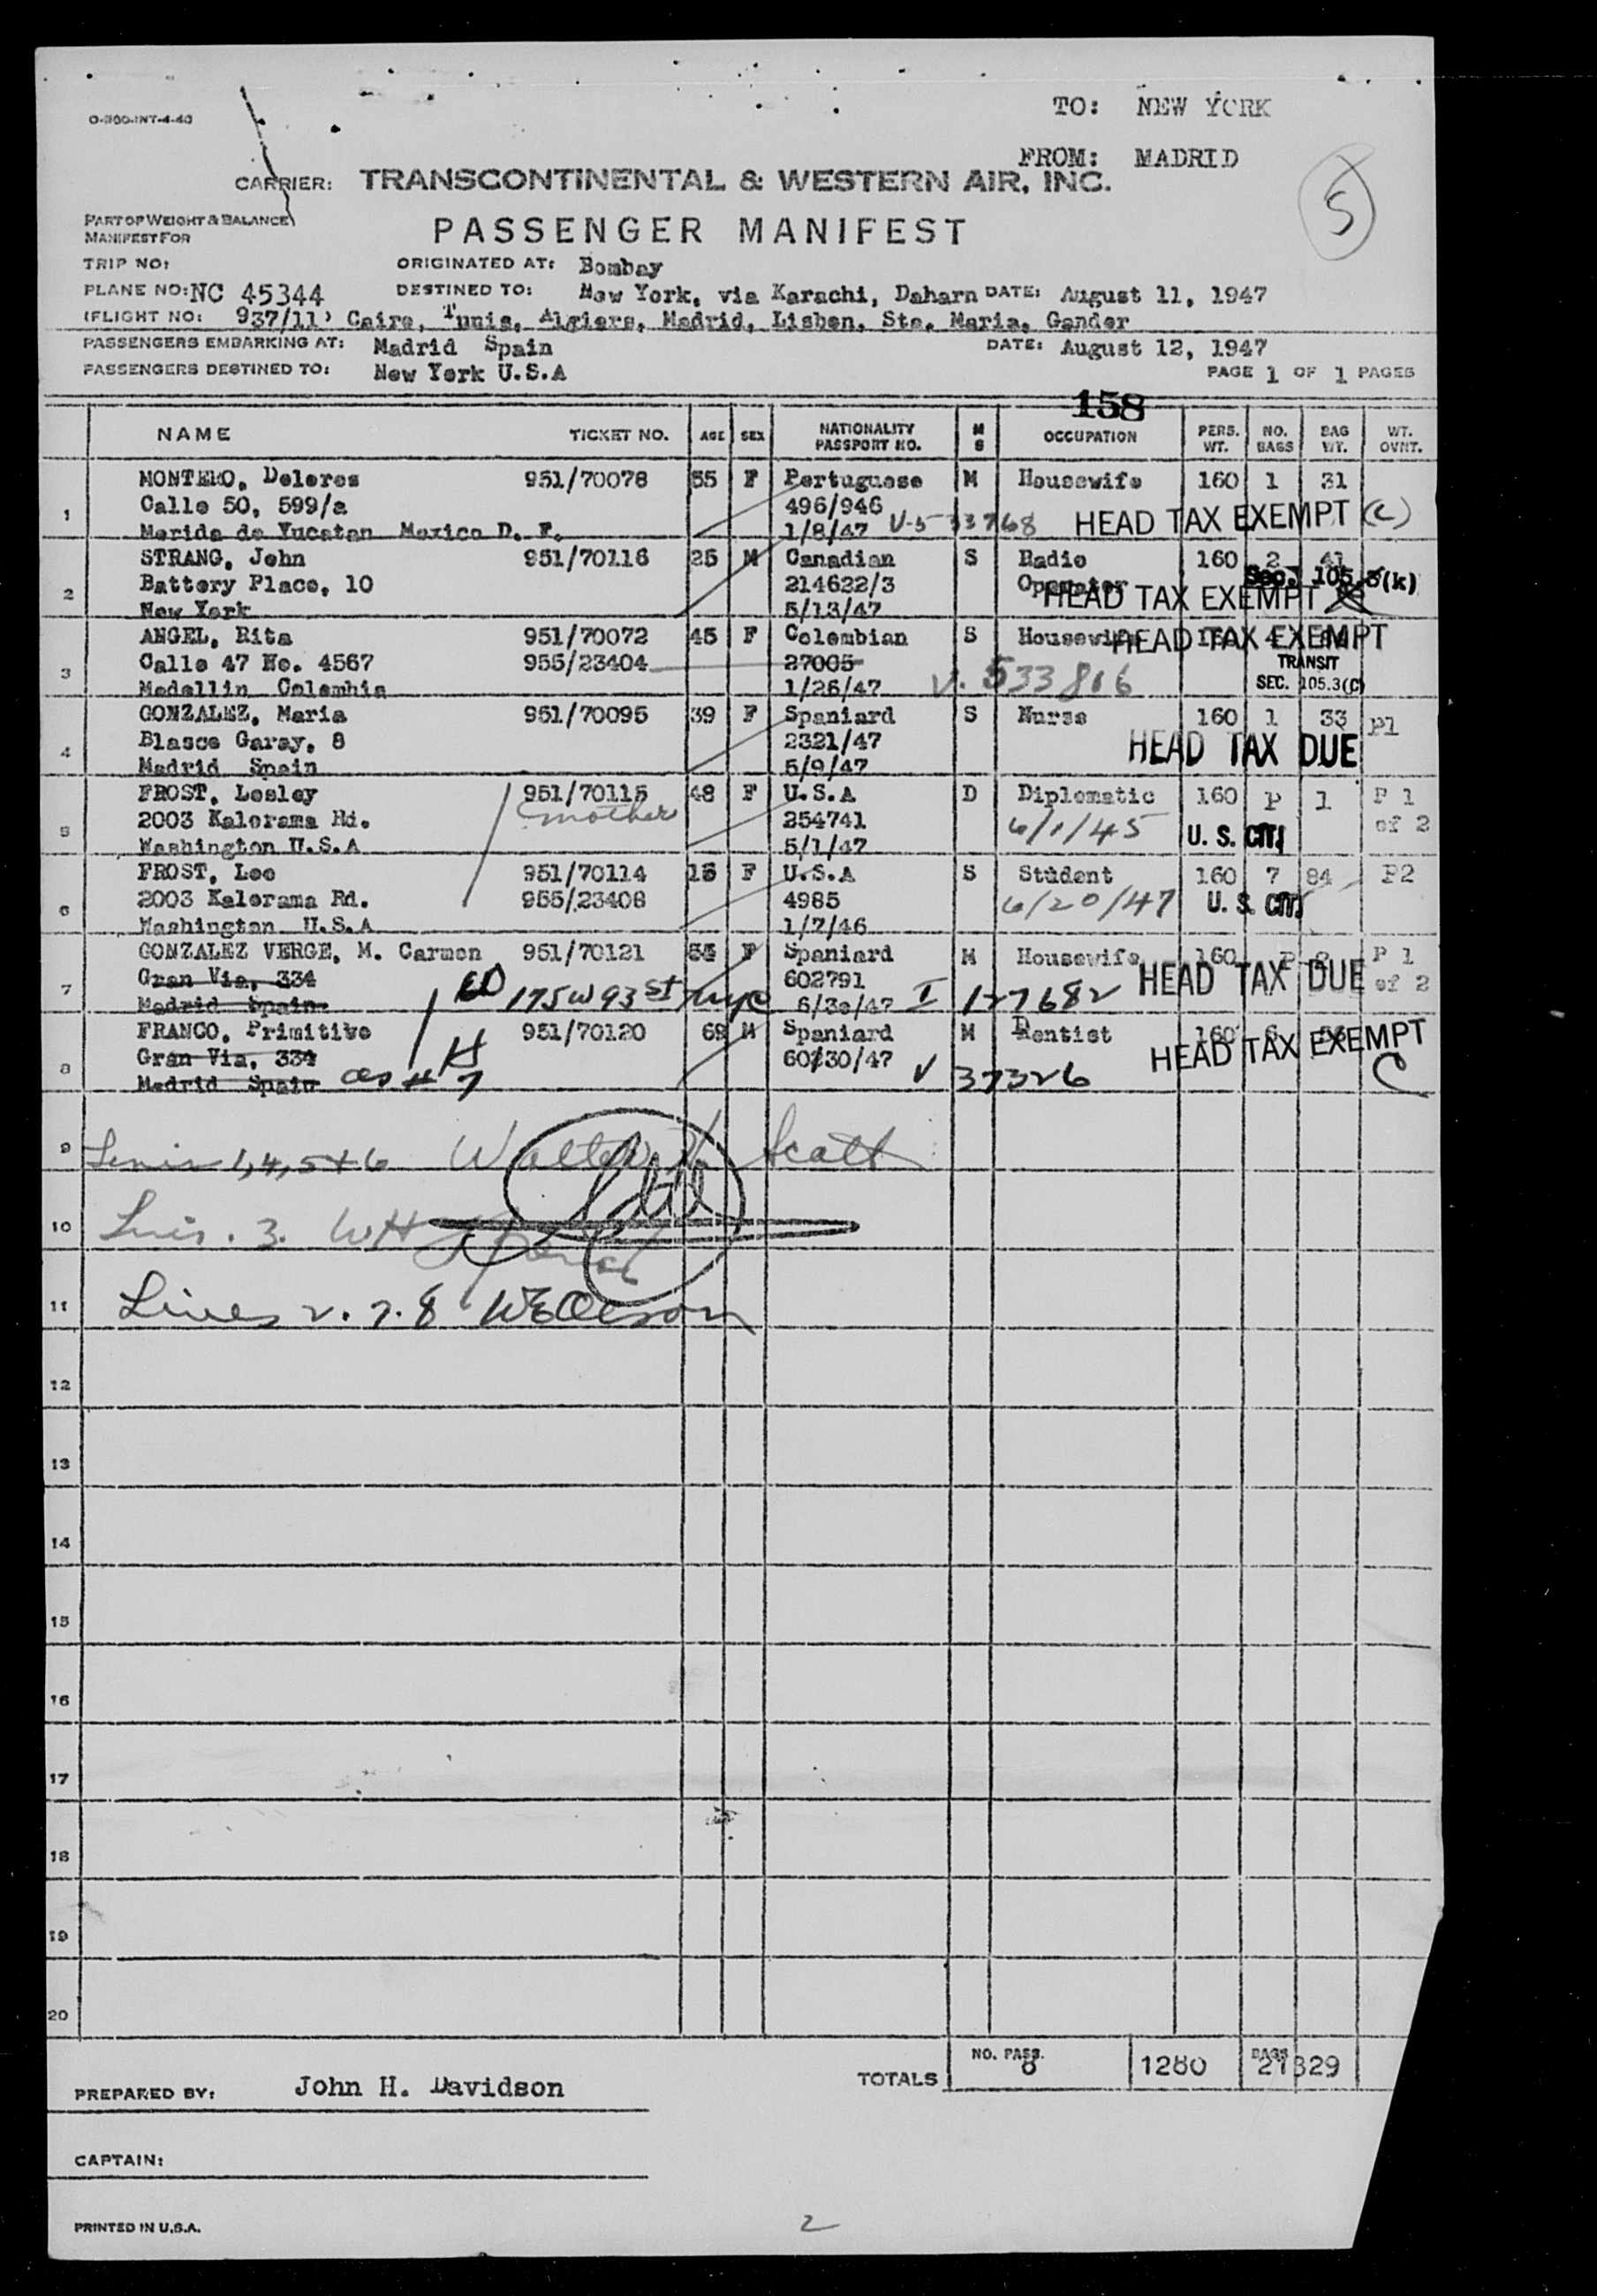 O-300-INT-4-46
TO: NEW YORK
FROM: MADRID
CARRIER: TRANSCONTINENTAL & WESTERN AIR, INC.
5
PART OF WEIGHT & BALANCE
MANIFEST FOR
PASSENGER MANIFEST
TRIP NO: ORIGINATED AT: Bombay
PLANE NO: NC 45344 DESTINED TO: New York, via Karachi, Daharn DATE: August 11, 1947
(FLIGHT NO: 937/11) Cairo, Tunis, Algiers, Madrid, Lisbon, Sta. Maria, Gander
PASSENGERS EMBARKING AT: Madrid Spain DATE: August 12, 1947
PASSENGERS DESTINED TO: New York U.S.A PAGE 1 OF 1 PAGES
158
NAME TICKET NO. AGE SEX NATIONALITY PASSPORT NO. M S OCCUPATION PERS. WT. NO. BAGS BAG WT. WT. OVNT.
MONTERO, Dolores 951/70078 55 F Portuguese M Housewife 160 1 31
Calle 50, 599/a 496/946
1 Merida de Yucatan Mexico D. F. 1/8/47 V-533768 HEAD TAX EXEMPT (C)
STRANG, John 951/70116 25 M Canadian S Radio 160 2 41
2 Battery Place, 10 214622/3 Operator Sec. 105.3(k)
New York 5/13/47 HEAD TAX EXEMPT
ANGEL, Rita 951/70072 45 F Colombian S Housewife HEAD TAX EXEMPT
3 Calle 47 No. 4567 955/23404 27005 TRANSIT
Medellin Colombia 1/26/47 V. 533806 SEC. 105.3(C)
GONZALEZ, Maria 951/70095 39 F Spaniard S Nurse 160 1 33 P1
4 Blasco Garay, 8 2321/47 HEAD TAX DUE
Madrid Spain 5/9/47
FROST, Lesley 951/70115 48 F U.S.A D Diplomatic 160 P 1 P 1
5 2003 Kalorama Rd. mother 254741 6/1/45 U. S. CIT. of 2
Washington U.S.A 5/1/47
FROST, Lee 951/70114 16 F U.S.A S Student 160 7 84 P2
6 2003 Kalorama Rd. 955/23408 4985 6/20/47 U. S. CIT.
Washington U.S.A 1/7/46
GONZALEZ VERGE, M. Carmen 951/70121 54 F Spaniard M Housewife 160 P 2 P 1
7 Gran Via, 334 602791 HEAD TAX DUE of 2
Madrid Spain 175 W 93 st NYC 6/30/47 I 127682
FRANCO, Primitivo 951/70120 68 M Spaniard M Dentist 160 6
8 Gran Via, 334 60230/47 HEAD TAX EXEMPT
Madrid Spain as # 7 V 37326 C
9 Lines 1,4,5+6 Walter H. Scott
10 Lines. 3. WH
11 Lines 2. 7. 8
12
13
14
15
16
17
18
19
20
TOTALS NO. PASS. 8 1280 BAGS 21 329
PREPARED BY: John H. Davidson
CAPTAIN:
PRINTED IN U.S.A.
2